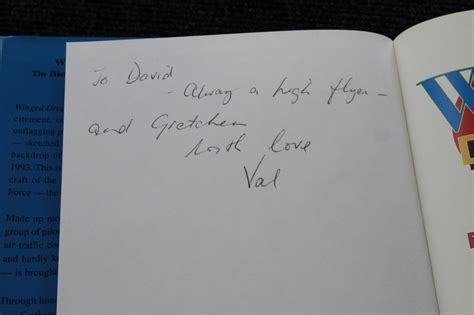 To David
- Always a high flyer -
and Gretchen
with love
Val
W
The His
Winged Dre
citement, co
unflagging p
— sketched
backdrop of
1993. This is
craft of the
Force — the
Made up mo
group of pilot
air traffic con
and hardly k
— is brought
Through han
W